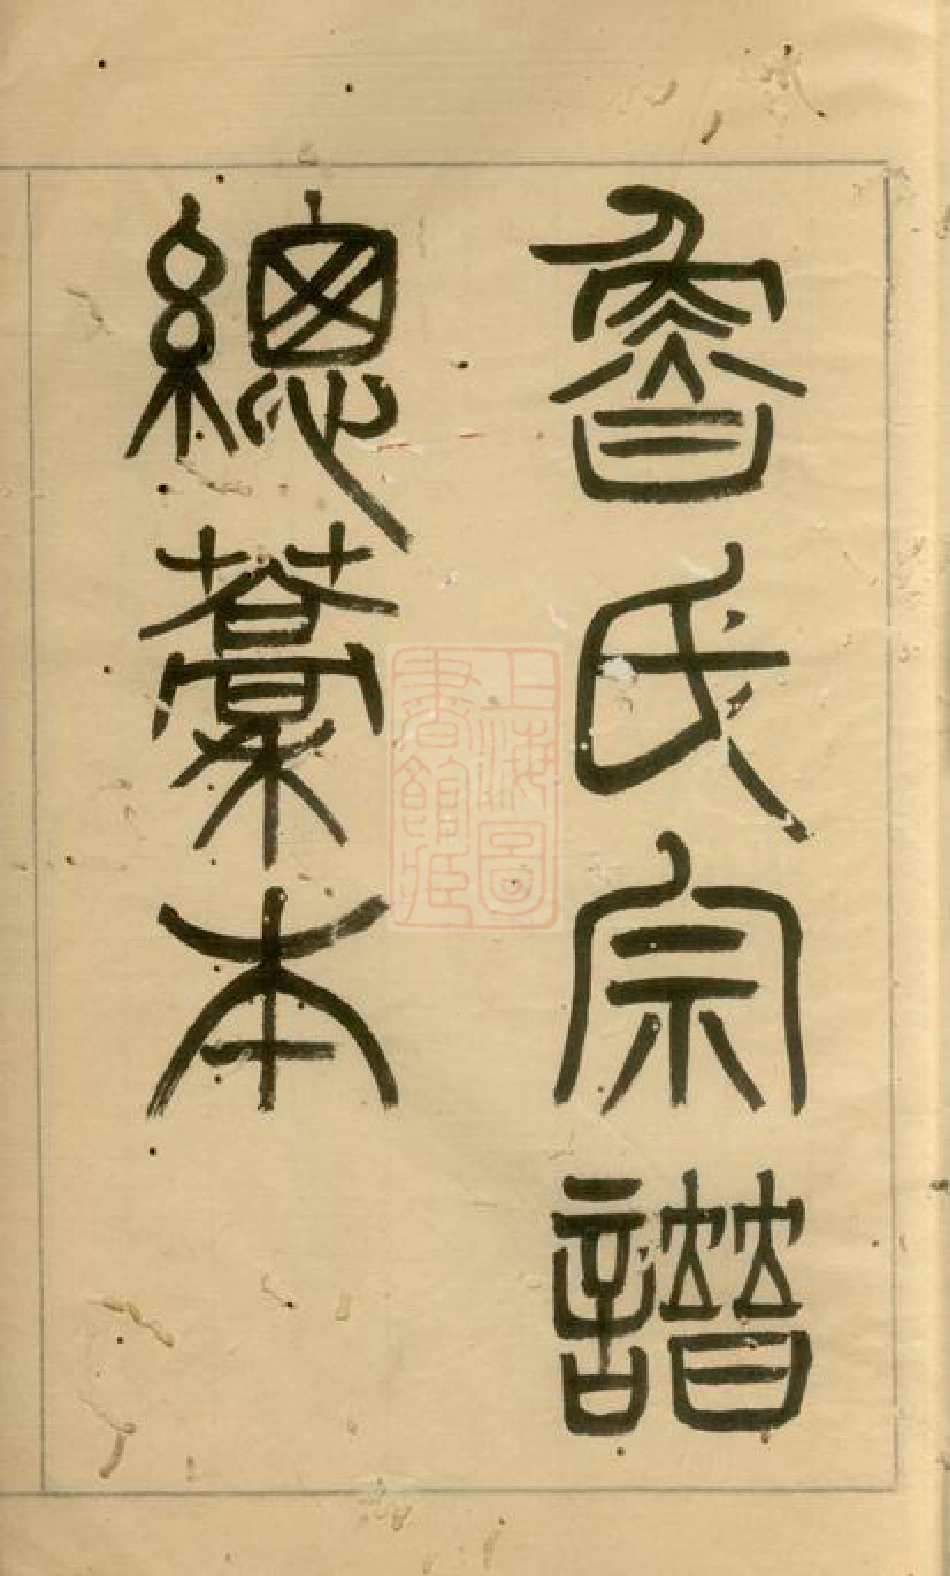 魯氏宗譜
總藁本
上海圖
書館藏